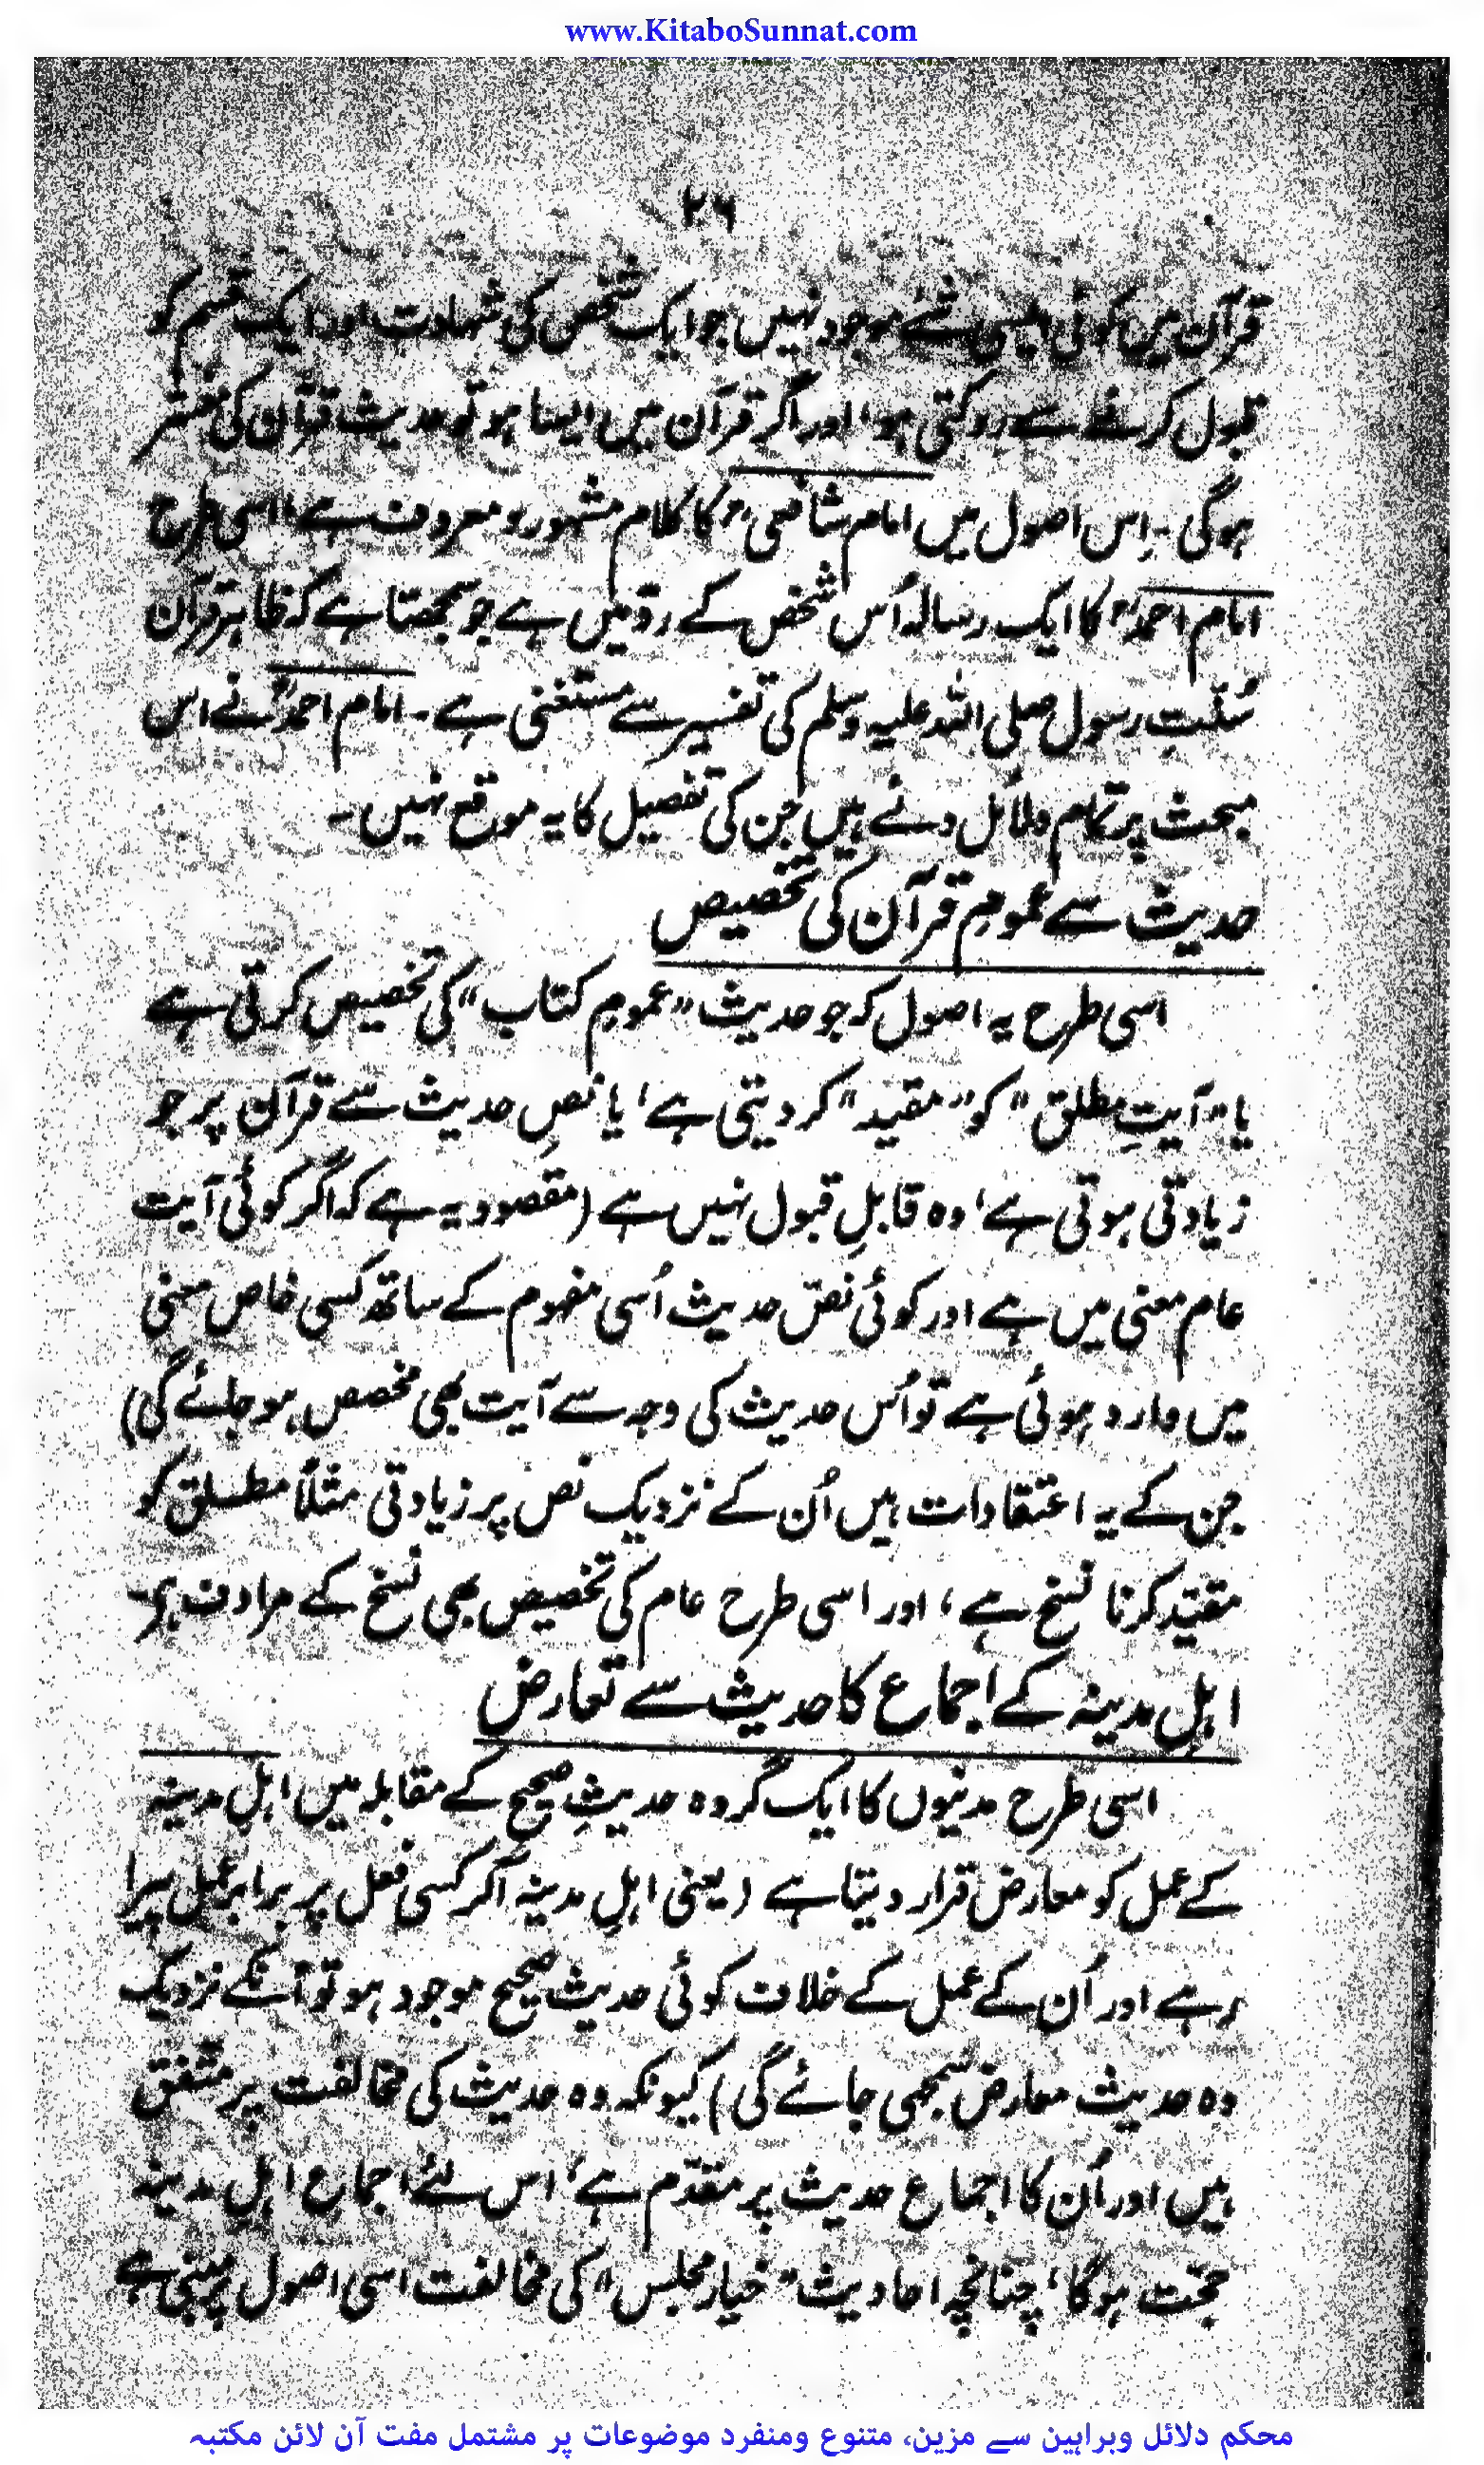 www.KitaboSunnat.com
۲۶
قرآن میں کوئی ایسی شئے موجود نہیں جو ایک شخص کی شہادت اور ایک قسم کو
قبول کرنے سے روکتی ہو، اور اگر قرآن میں ایسا ہو تو حدیث قرآن کی مفسّر
ہوگی۔ اِس اصول میں امام شافعیؒ کا کلام مشہور و معروف ہے، اسی طرح
امام احمدؒ کا ایک رسالہ اُس شخص کے رد میں ہے جو سمجھتا ہے کہ ظاہر قرآن
سُنّتِ رسول صلی اللہ علیہ وسلم کی تفسیر سے مستغنی ہے۔ امام احمدؒ نے اس
مبحث پر تمام دلائل دئے ہیں جن کی تفصیل کا یہ موقع نہیں۔
حدیث سے عمومِ قرآن کی تخصیص
اسی طرح یہ اصول کہ جو حدیث "عمومِ کتاب" کی تخصیص کرتی ہے
یا "آیتِ مطلق" کو "مقید" کر دیتی ہے، یا نصِ حدیث سے قرآن پر جو
زیادتی ہوتی ہے، وہ قابلِ قبول نہیں ہے (مقصود یہ ہے کہ اگر کوئی آیت
عام معنی میں ہے اور کوئی نصّ حدیث اُسی مفہوم کے ساتھ کسی خاص معنی
میں وارد ہوئی ہے تو اُس حدیث کی وجہ سے آیت بھی مخصص ہو جائے گی)
جن کے یہ اعتقادات ہیں اُن کے نزدیک نص پر زیادتی مثلاً مطلق کو
مقیّد کرنا نسخ ہے، اور اسی طرح عام کی تخصیص بھی نسخ کے مرادف ہے۔
اہلِ مدینہ کے اجماع کا حدیث سے تعارض
اسی طرح مدنیوں کا ایک گروہ حدیثِ صحیح کے مقابلہ میں اہلِ مدینہ
کے عمل کو معارض قرار دیتا ہے (یعنی اہلِ مدینہ اگر کسی فعل پر برابر عمل پیرا
رہے اور اُن کے عمل کے خلاف کوئی حدیث صحیح موجود ہو تو اُنکے نزدیک
وہ حدیث معارض سمجھی جائے گی) کیونکہ وہ حدیث کی مخالفت پر متفق
ہیں اور اُن کا اجماع حدیث پر مقدّم ہے، اس لئے اجماع اہلِ مدینہ
حجّت ہوگا، چنانچہ احادیث "خیار مجلس" کی مخالفت اسی اصول پر مبنی ہے
محکم دلائل وبراہین سے مزین، متنوع ومنفرد موضوعات پر مشتمل مفت آن لائن مکتبہ